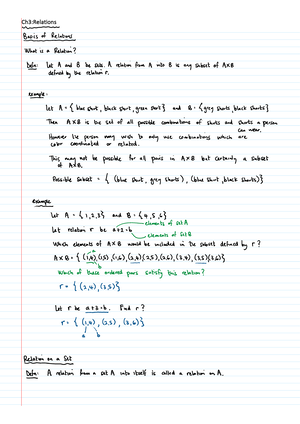 Ch3:Relations
Basics of Relations
What is a Relation?
Defn: Let A and B be sets. A relation from A into B is any subset of A×B
defined by the relation r.
example -
Let A = { blue shirt, black shirt, green shirt } and B = { grey shorts, black shorts }
Then A×B is the set of all possible combinations of shirts and shorts a person
can wear.
However the person may wish to only use combinations which are
color coordinated or related.
This may not be possible for all pairs in A×B but certainly a subset
of A×B.
Possible Subset = { (blue shirt, grey shorts), (blue shirt, black shorts) }
example
Let A = { 1,2,3 } and B = { 4,5,6 }
elements of set A
Let relation r be a+2=b
elements of set B
Which elements of A×B would be included in the subset defined by r?
A×B = { (1,4),(1,5),(1,6),(2,4),(2,5),(2,6),(3,4),(3,5),(3,6) }
a b
Which of these ordered pairs satisfy this relation?
r = { (2,4), (3,5) }
Let r be a+3=b. Find r?
r = { (1,4), (2,5), (3,6) }
a b
Relation on a Set
Defn: A relation from a set A into itself is called a relation on A.